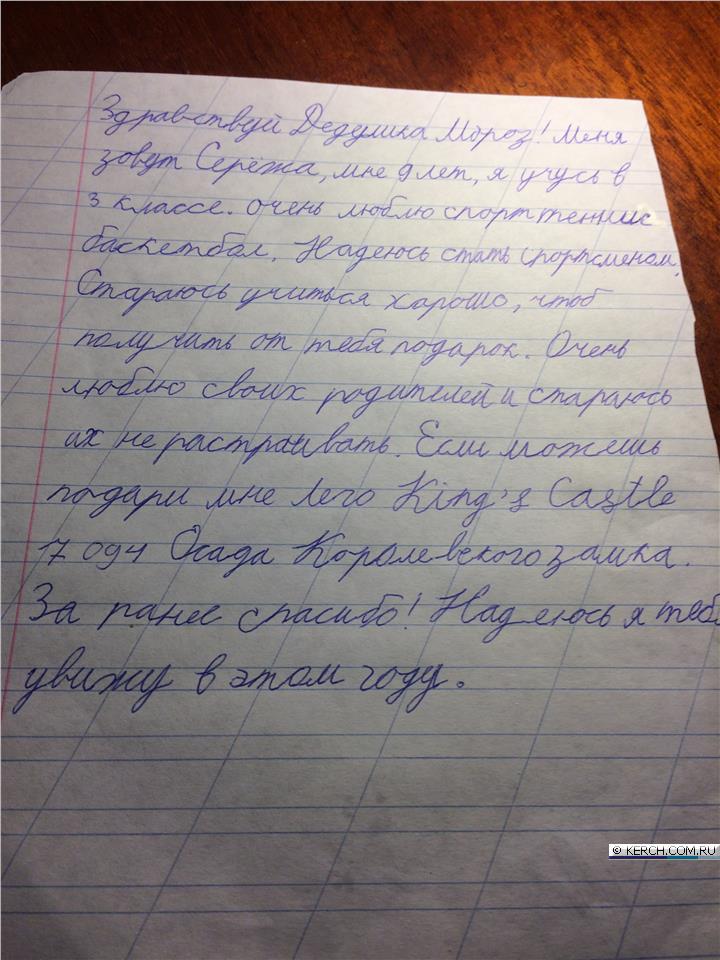 Здравствуй Дедушка Мороз! Меня
зовут Серёжа, мне 9 лет, я учусь в
3 классе. очень люблю спорт теннис
баскетбол. Надеюсь стать спортсменом.
Стараюсь учиться хорошо, чтоб
получить от тебя подарок. Очень
люблю своих родителей и стараюсь
их не растраивать. Если можешь
подари мне Лего King's Castle
17 094 Осада Королевского замка.
За ранее спасибо! Надеюсь я тебя
увижу в этом году.
© KERCH.COM.RU